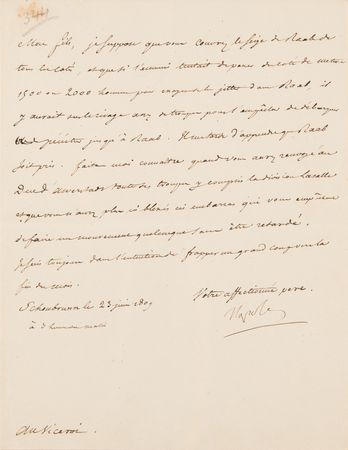 Mon fils, je suppose que vous couvrez le siège de Raab de
tous les côtés, et que si l'ennemi tentait de passer
1500 ou 2000 hommes pour se jetter dans Raab, il
y aurait sur le rivage assez de troupes pour l'empêcher de débarquer
et de pénétrer jusqu'à Raab. Il me tarde d'apprendre que Raab
soit pris. faites moi connaître quand vous aurez renvoyé au
Duc d'auerstadt toutes ses troupes, y compris la division Lasalle
et que vous n'aurez plus ni blessés ni embarras qui vous empêchent
de faire un mouvement quelconque sans être retardé.
Je suis toujours dans l'intention de frapper un grand coup vers la
fin du mois.
Votre affectionné père.
Schonbrunn le 23 juin 1809
à
Au Viceroi.